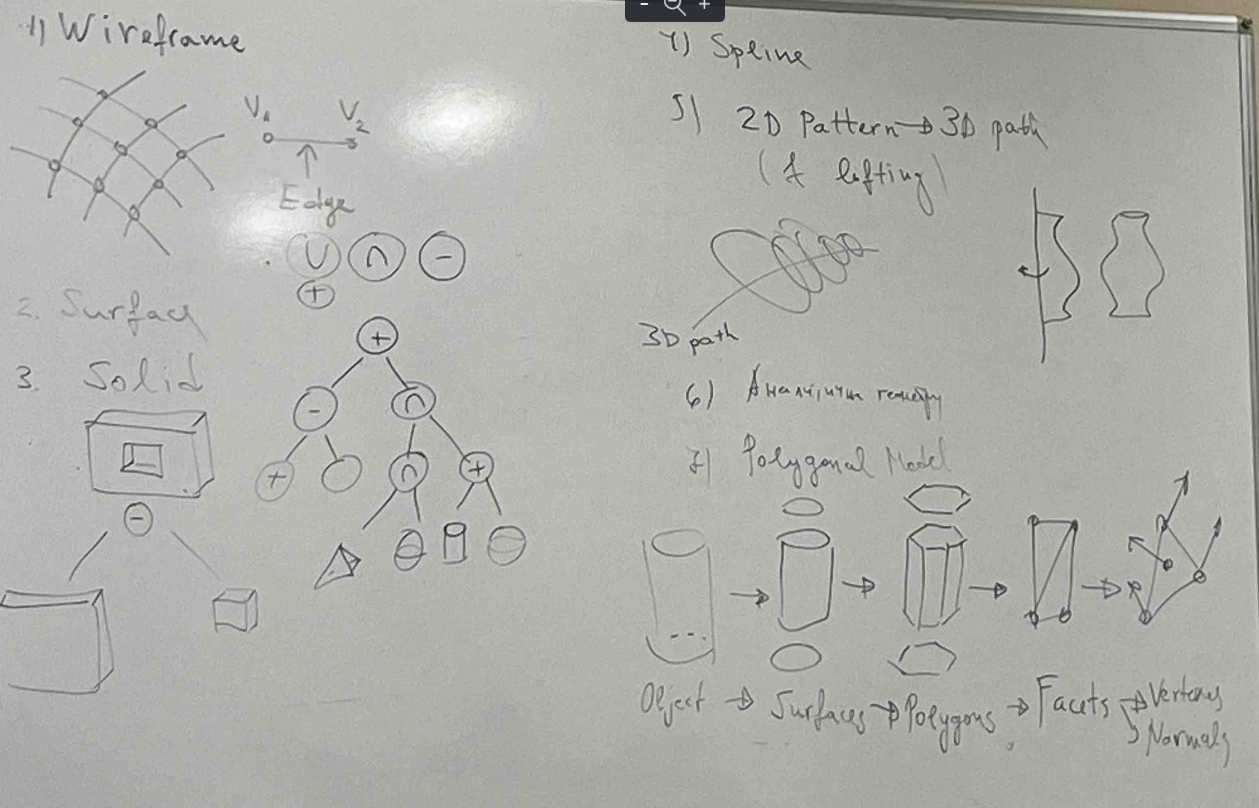 1) Wireframe
V1 V2
Edge
∪ ∩ -
+
2. Surfac
3. Solid
+
- ∩
+ ∩ +
-
4) Spline
5) 2D Pattern → 3D path
(& lofting)
3D path
6)
7) Polygonal Model
Object → Surfaces → Polygons → Facets → Vertexes
Normals